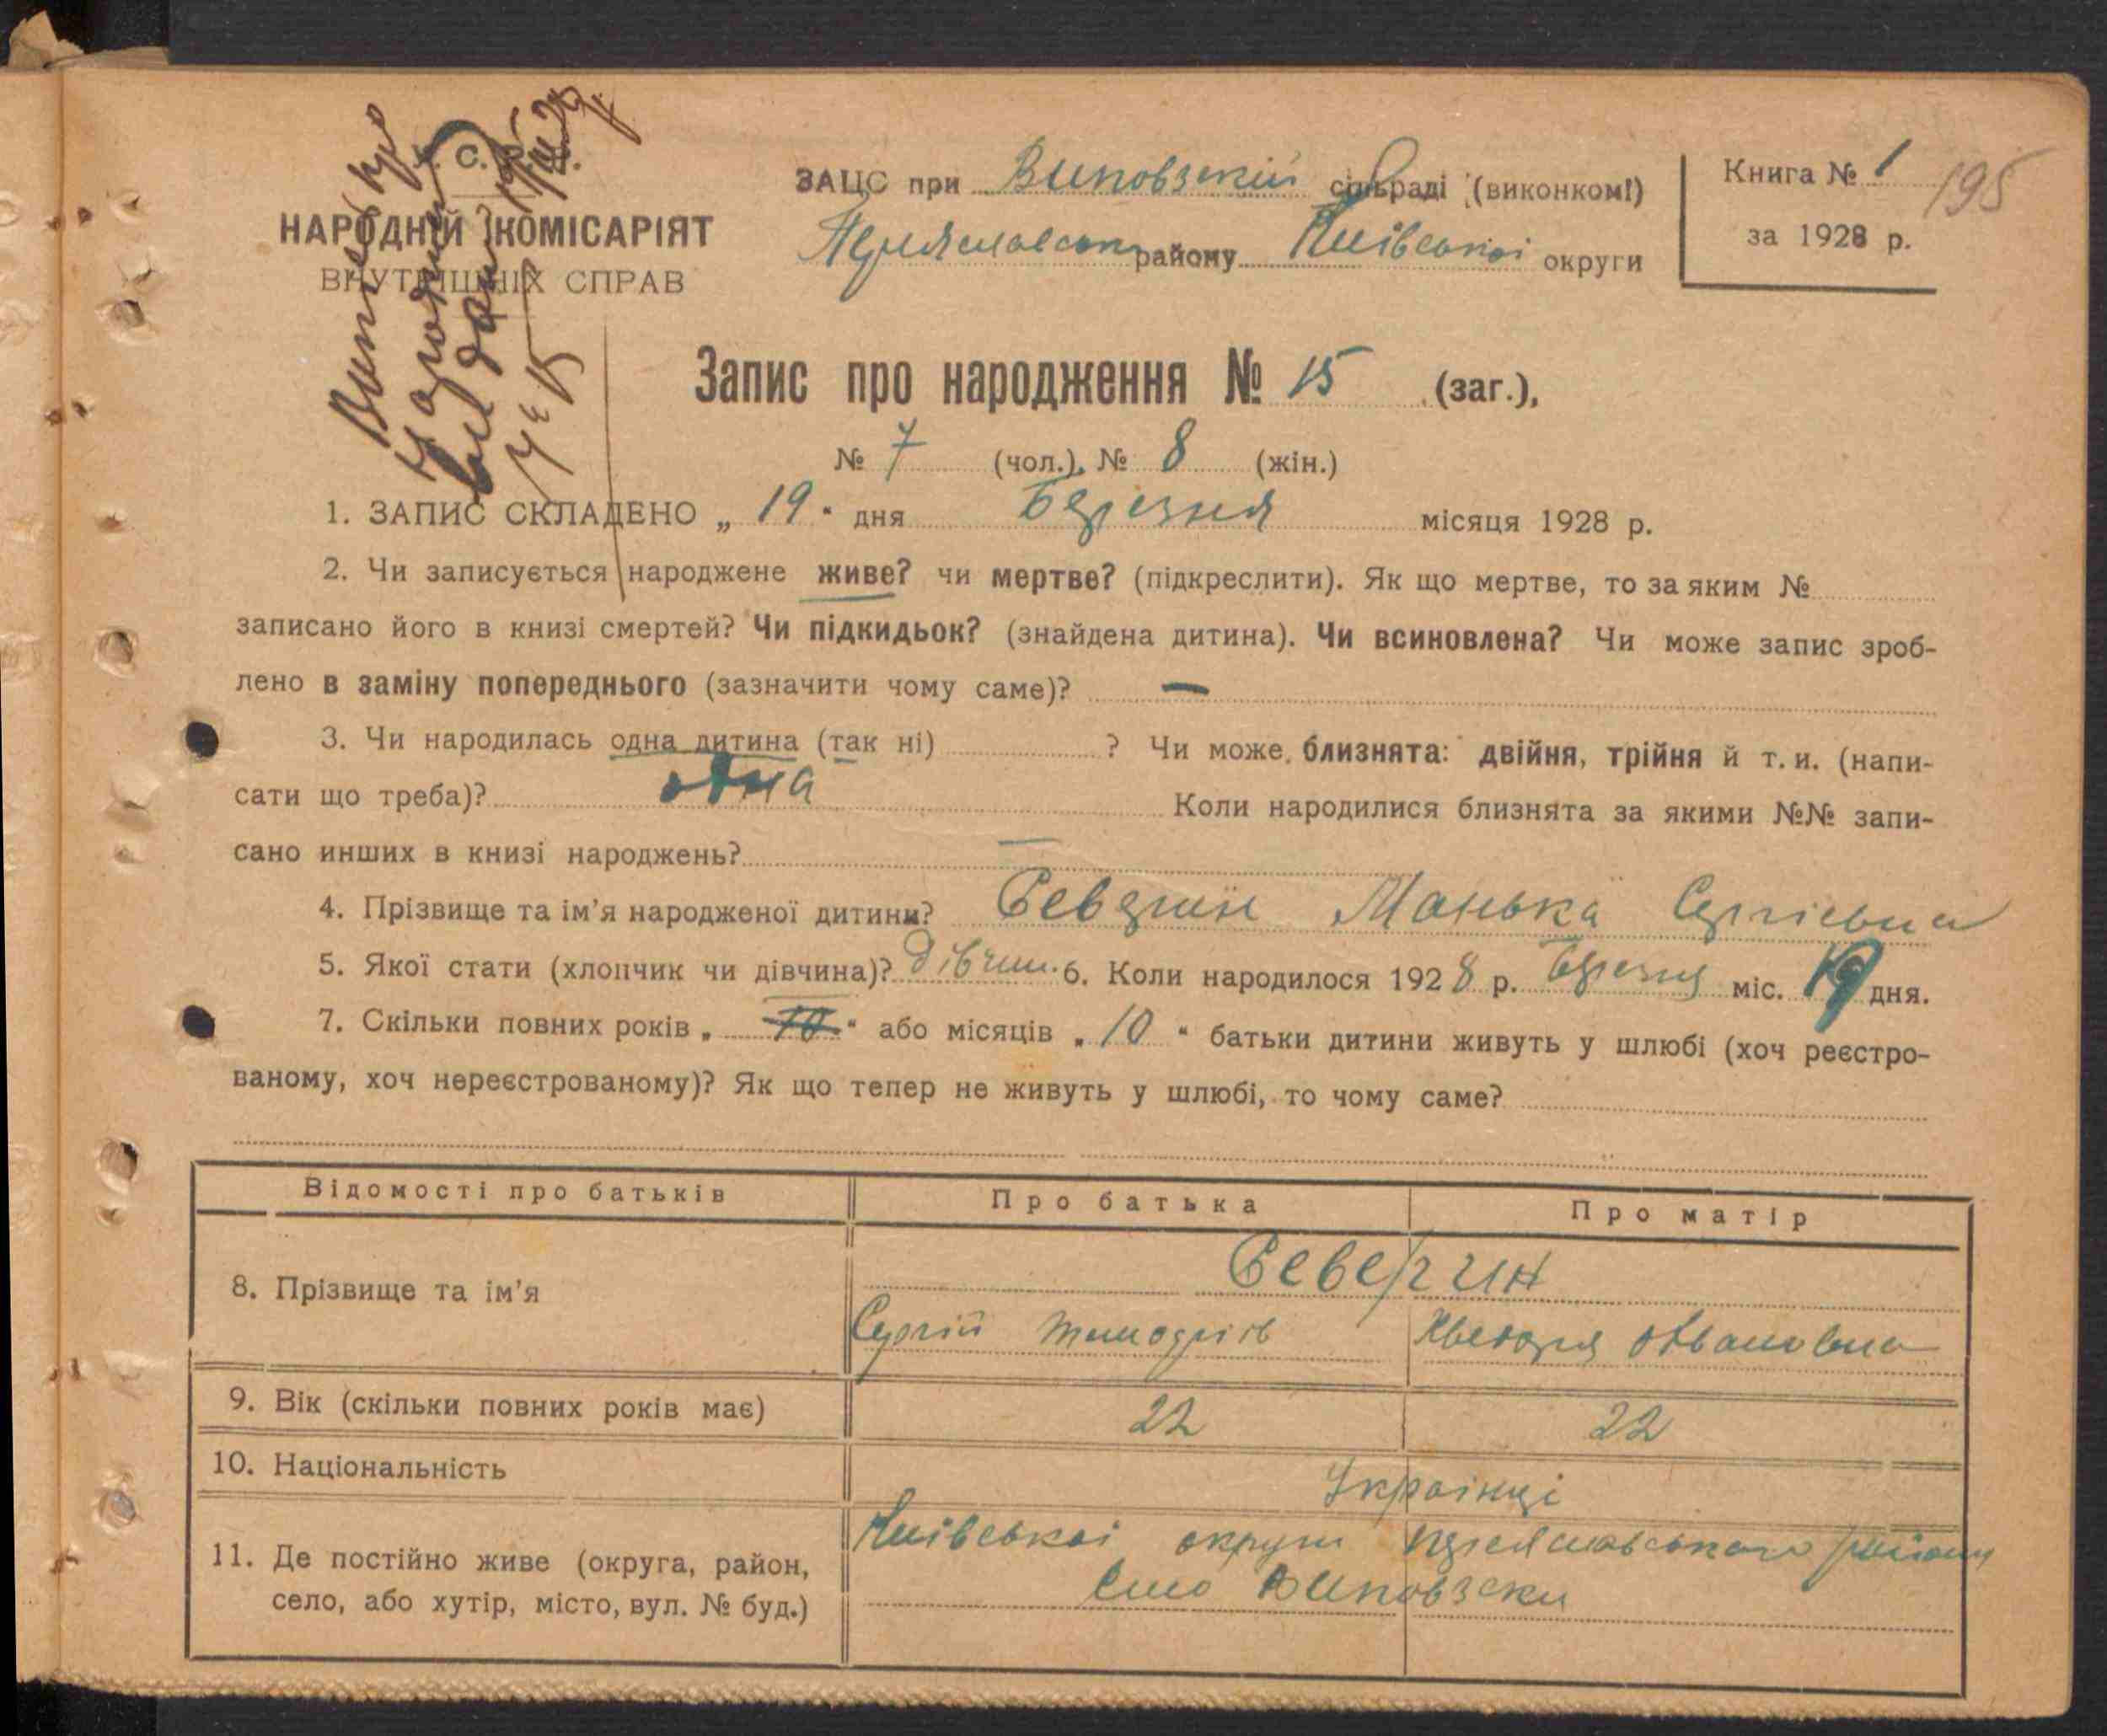 С.
НАРОДНІЙ КОМІСАРІЯТ
ВНУТРІШНІХ СПРАВ
Витяг про
ЗАЦС при Виповзській сільраді (виконкомі)
району Київської округи
Книга № 1
195
за 1928 р.
Запис про народження № 15 (заг.),
№ 7 (чол.), № 8 (жін.)
1. ЗАПИС СКЛАДЕНО „ 19 " дня Березня місяця 1928 р.
2. Чи записується народжене живе? чи мертве? (підкреслити). Як що мертве, то за яким №
записано його в книзі смертей? Чи підкидьок? (знайдена дитина). Чи всиновлена? Чи може запис зроб-
лено в заміну попереднього (зазначити чому саме)? —
3. Чи народилась одна дитина (так ні) ? Чи може близнята: двійня, трійня й т. и. (напи-
сати що треба)? одна Коли народилися близнята за якими №№ запи-
сано инших в книзі народжень? —
4. Прізвище та ім'я народженої дитини? Севергин Манька Сергієвна
5. Якої стати (хлопчик чи дівчина)? дівчин. 6. Коли народилося 1928 р. Березня міс. 19 дня.
7. Скільки повних років „ 10 " або місяців „ 10 " батьки дитини живуть у шлюбі (хоч реєстро-
ваному, хоч нереєстрованому)? Як що тепер не живуть у шлюбі, то чому саме?
Відомості про батьків Про батька Про матір
8. Прізвище та ім'я Севергин
Сергій Явановна
9. Вік (скільки повних років має) 22 22
10. Національність Українці
11. Де постійно живе (округа, район, Київської округи Переяславського району
село, або хутір, місто, вул. № буд.) село Виповзски